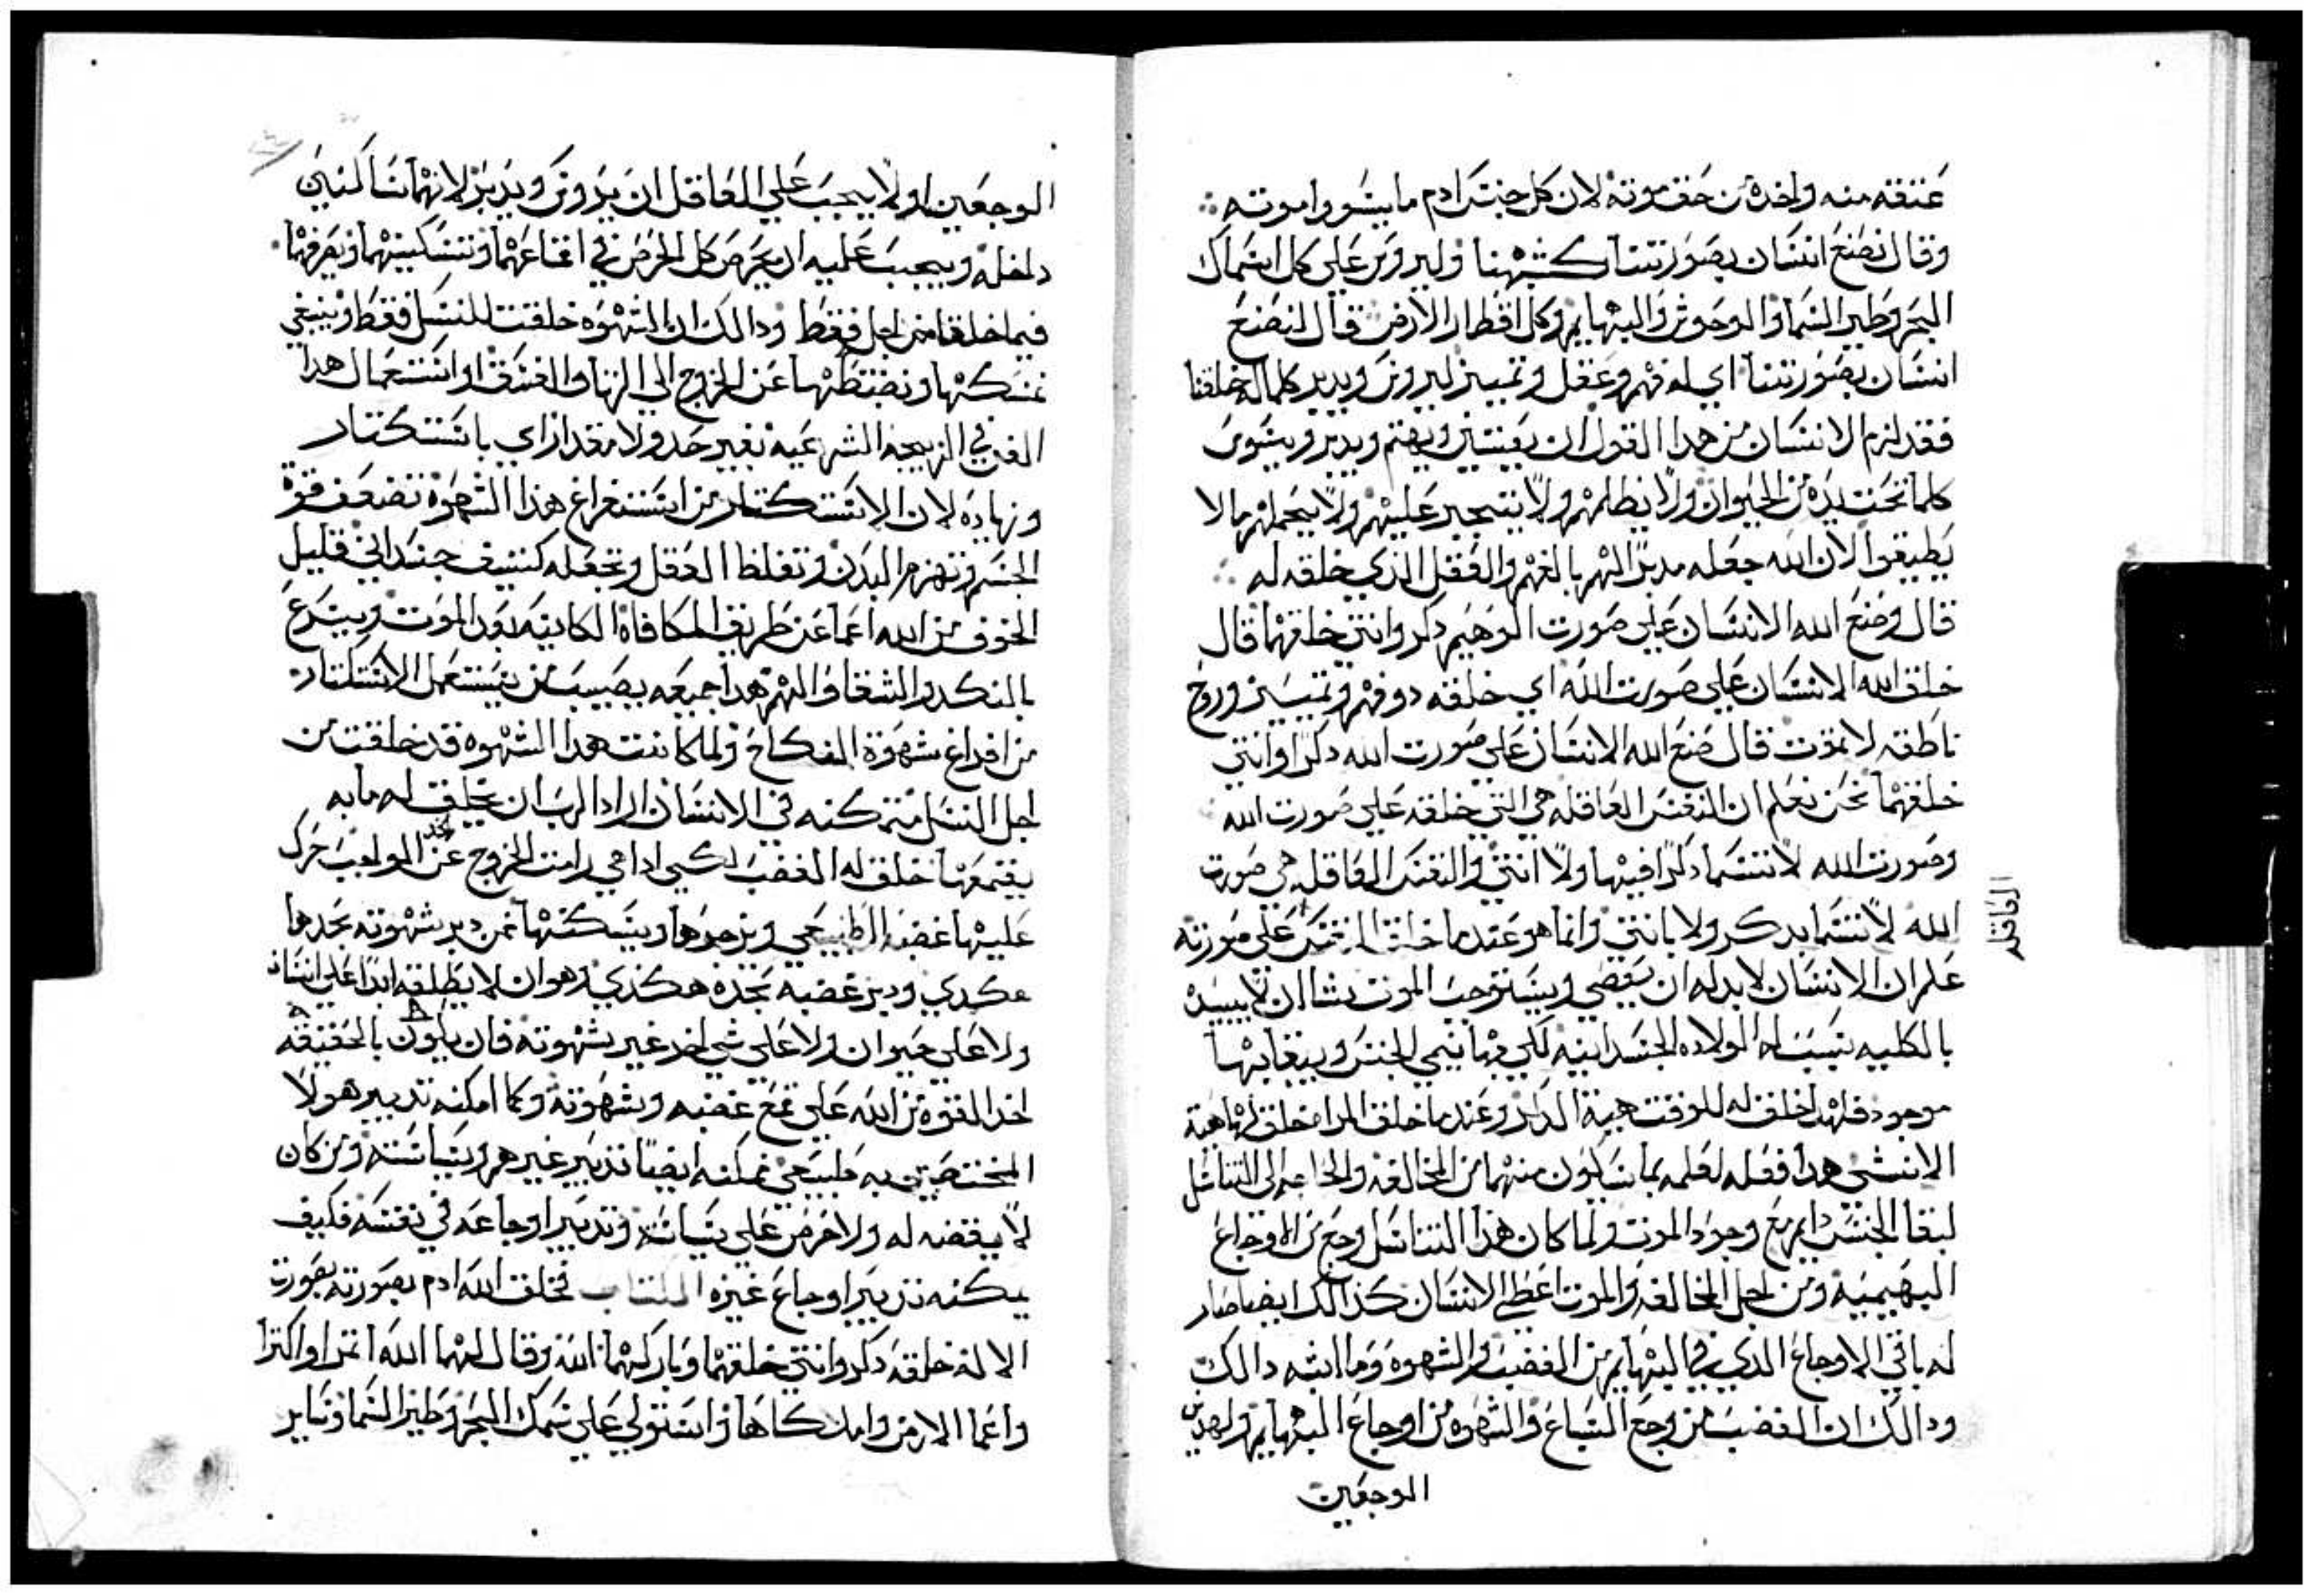 عتقه منه واخده من حق موته لان كل جنس ادم ما يسووا موته
وقال نصنع انسان بصورتنا كشبهنا وليروس علي كل اسماك
البحر وطير السما والوحوش والبهايم وكل اقطار الارض قال لنصنع
انسان بصورتنا اي له فهم وعقل وتمييز ليروس ويدبر كلما خلقنا
فقد لزم الانسان من هدا القول ان يعتني ويهتم ويدبر ويسوس
كلما تحت يده من الحيوان ولا يظلمهم ولا يتجبر عليهم ولا يحملهم ما لا
يطيقوا لان الله جعله مدبرا لهم بالفهم والعقل الذي خلقه له
قال وصنع الله الانسان علي صورت الوهيم دكر وانتي خلقهما قال
خلق الله الانسان علي صورت الله اي خلقه دو فهم وتمييز وروح
ناطقه لا تموت قال صنع الله الانسان علي صورت الله دكرا وانتي
خلقهما نحن نعلم ان النفس العاقله هي التي خلقه علي صورت الله
وصورت الله لا تتسما دكرا فيها ولا انتي والنفس العاقله هي صورت
الله لا تتسما بدكر ولا بانتي وانما هو عندما خلق علي صورته
علم ان الانسان لابد له ان يعصي ويستوجب الموت بشا ان لا يبيده
بالكليه بسبب له الولاده الجسدانيه لكي بها ينمي الجنس وببقايها
موجود فلهدا خلق له للوقت هيبة الدكر وعندما خلق المراه خلق لها هية
الانتي هدا فعله لعلمه بما سيكون منهما من المخالفه والحاجه الي التناسل
لبقا الجنس دايم مع وجود الموت ولما كان هذا التناسل وجع من الاوجاع
البهيميه ومن اجل المخالفه والموت اعطي الانسان كذالك ايضا صار
له باقي الاوجاع الدي في البهايم من الغضب والشهوه وما اشبه دالك
ودالك ان الغضب من وجع السباع والشهوه من اوجاع البهايم ولهدين
الوجعين
العاقله
الوجعين اولا يجب علي العاقل ان يروس ويدبر لانهما ساكنين
داخله ويجب عليه ان يحرص كل الحرص في اقناعهما وتسكينهما وتصرفهما
فيما خلقا من اجل فقط ودالك ان الشهوه خلقت للنسل فقط وينبغي
نمسكها ونضبطها عن الخروج الي الزنا والفسق او استعمال هدا
الفن في الزيجه الشرعيه بغير حد ولا مقدار اي باستكتار
وزياده لان الاستكتار من استفراغ هذا الشهوة تضعف قوة
الجسم وتهزم البدن وتغلظ العقل وتجعله كتيف جسداني قليل
الخوف من الله اعما عن طريق المكافاة الكاينه بعد الموت ويسرع
بالنكد والشقا والهم هدا جميعه يصيب من يستعمل الاستكتار
من افراغ شهوة النكاح ولما كانت هدا الشهوه قد خلقت من
اجل النسل متمكنه في الانسان اراد الرب ان يخلق له ما به
يقمعها خلق له الغضب لكي ادا هي رامت الخروج عن الحد الواجب حرك
عليها غضبه الطبيعي ويزجرها ويسكتها فمن دبر شهوته بحدها
هكدي ودبر غضبه بحده هكذي وهو ان لا يطلقه ابدا علي انسان
ولا علي حيوان ولا علي شي اخر غير شهوته فان يكون بالحقيقه
اخد القوه من الله علي قمع غضبه وشهوته وكما امكنه تدبير هولا
المختصين به طبيعي يمكنه ايضا تدبير غيرهم وسياسته ومن كان
لا يقضه له ولا حرص علي سياسة وتدبير اوجاعه في نفسه فكيف
يمكنه تدبير اوجاع غيره الكتاب فخلق الله ادم بصورته بصورت
الاله خلقه دكر وانتي خلقهما وباركهما الله وقال لهما الله اتمرا واكترا
واعما الارض واملكاها واستولي علي سمك البحر وطير السما وساير